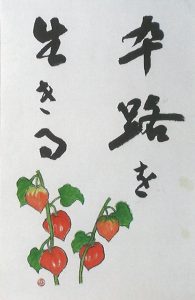 卆路を
生きる